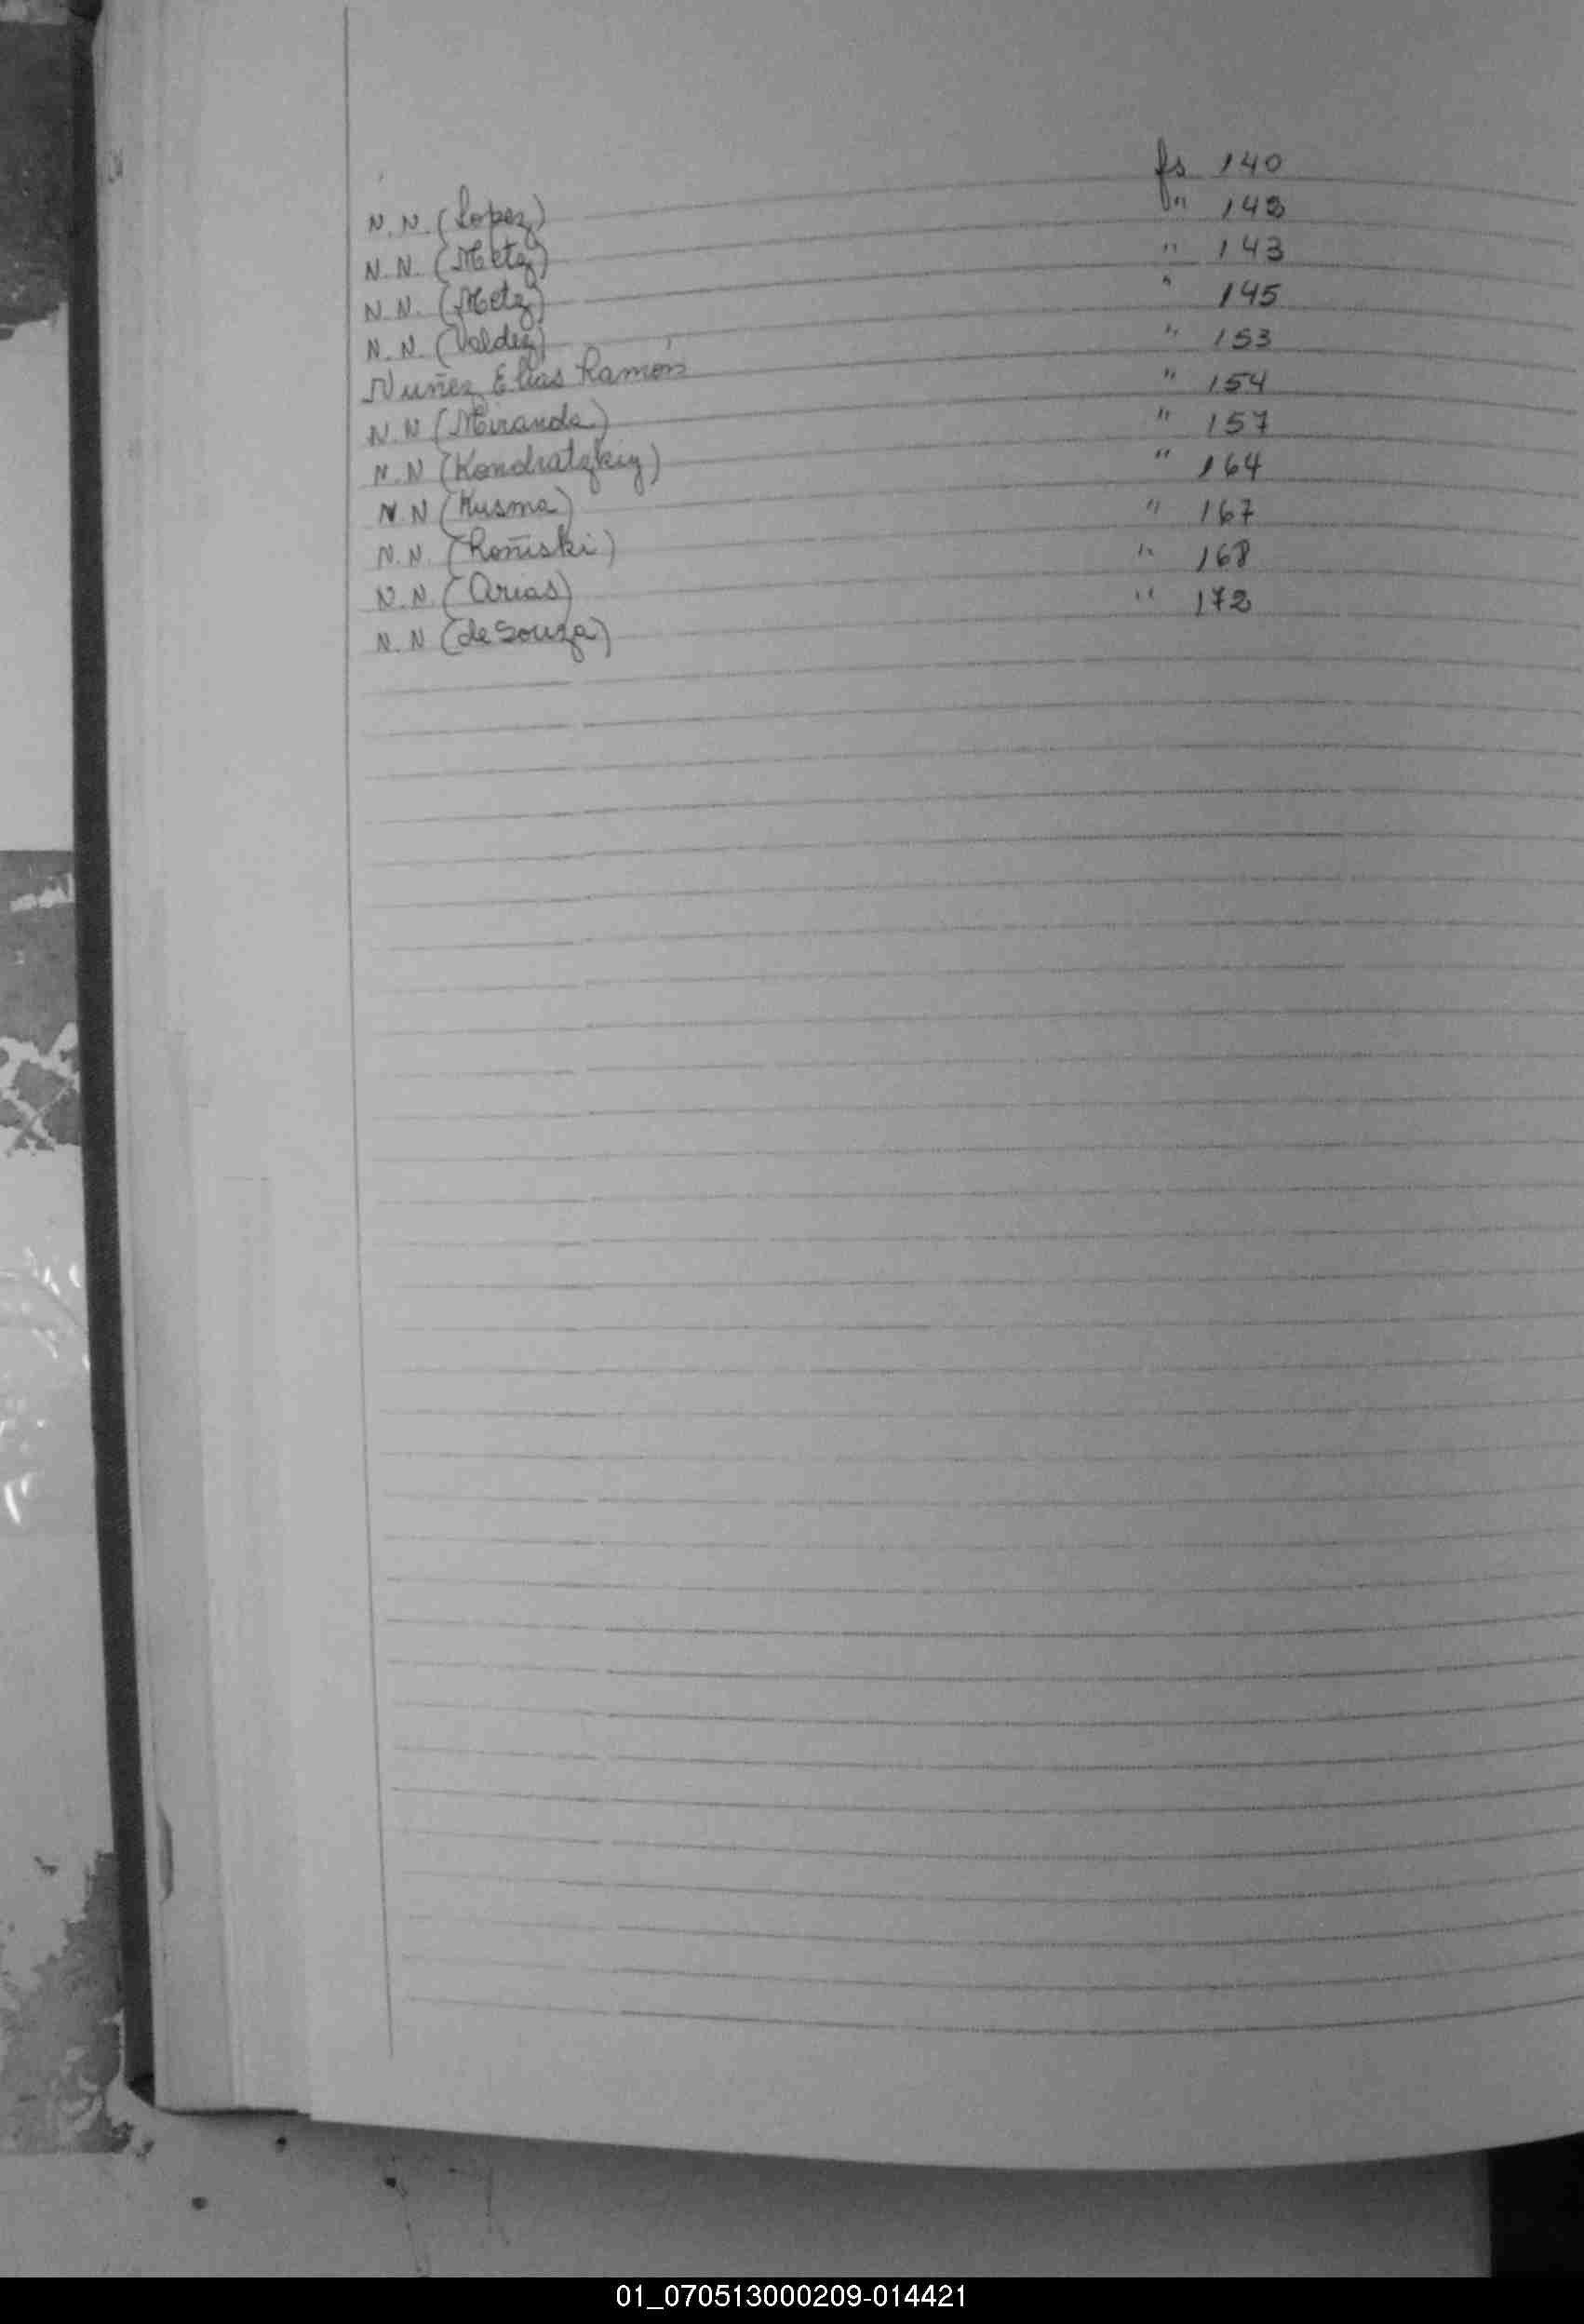 N. N. (Lopez) fs 140
N. N. (Metz) " 142
N. N. (Metz) " 143
N. N. (Valdez) " 145
Nuñez Elias Ramón " 153
N. N (Miranda) " 154
N. N (Kondratzkiy) " 157
N. N (Kusma) " 164
N. N. (Roñiski) " 167
N. N. (Arias) " 168
N. N (de Souza) " 172
01_070513000209-014421